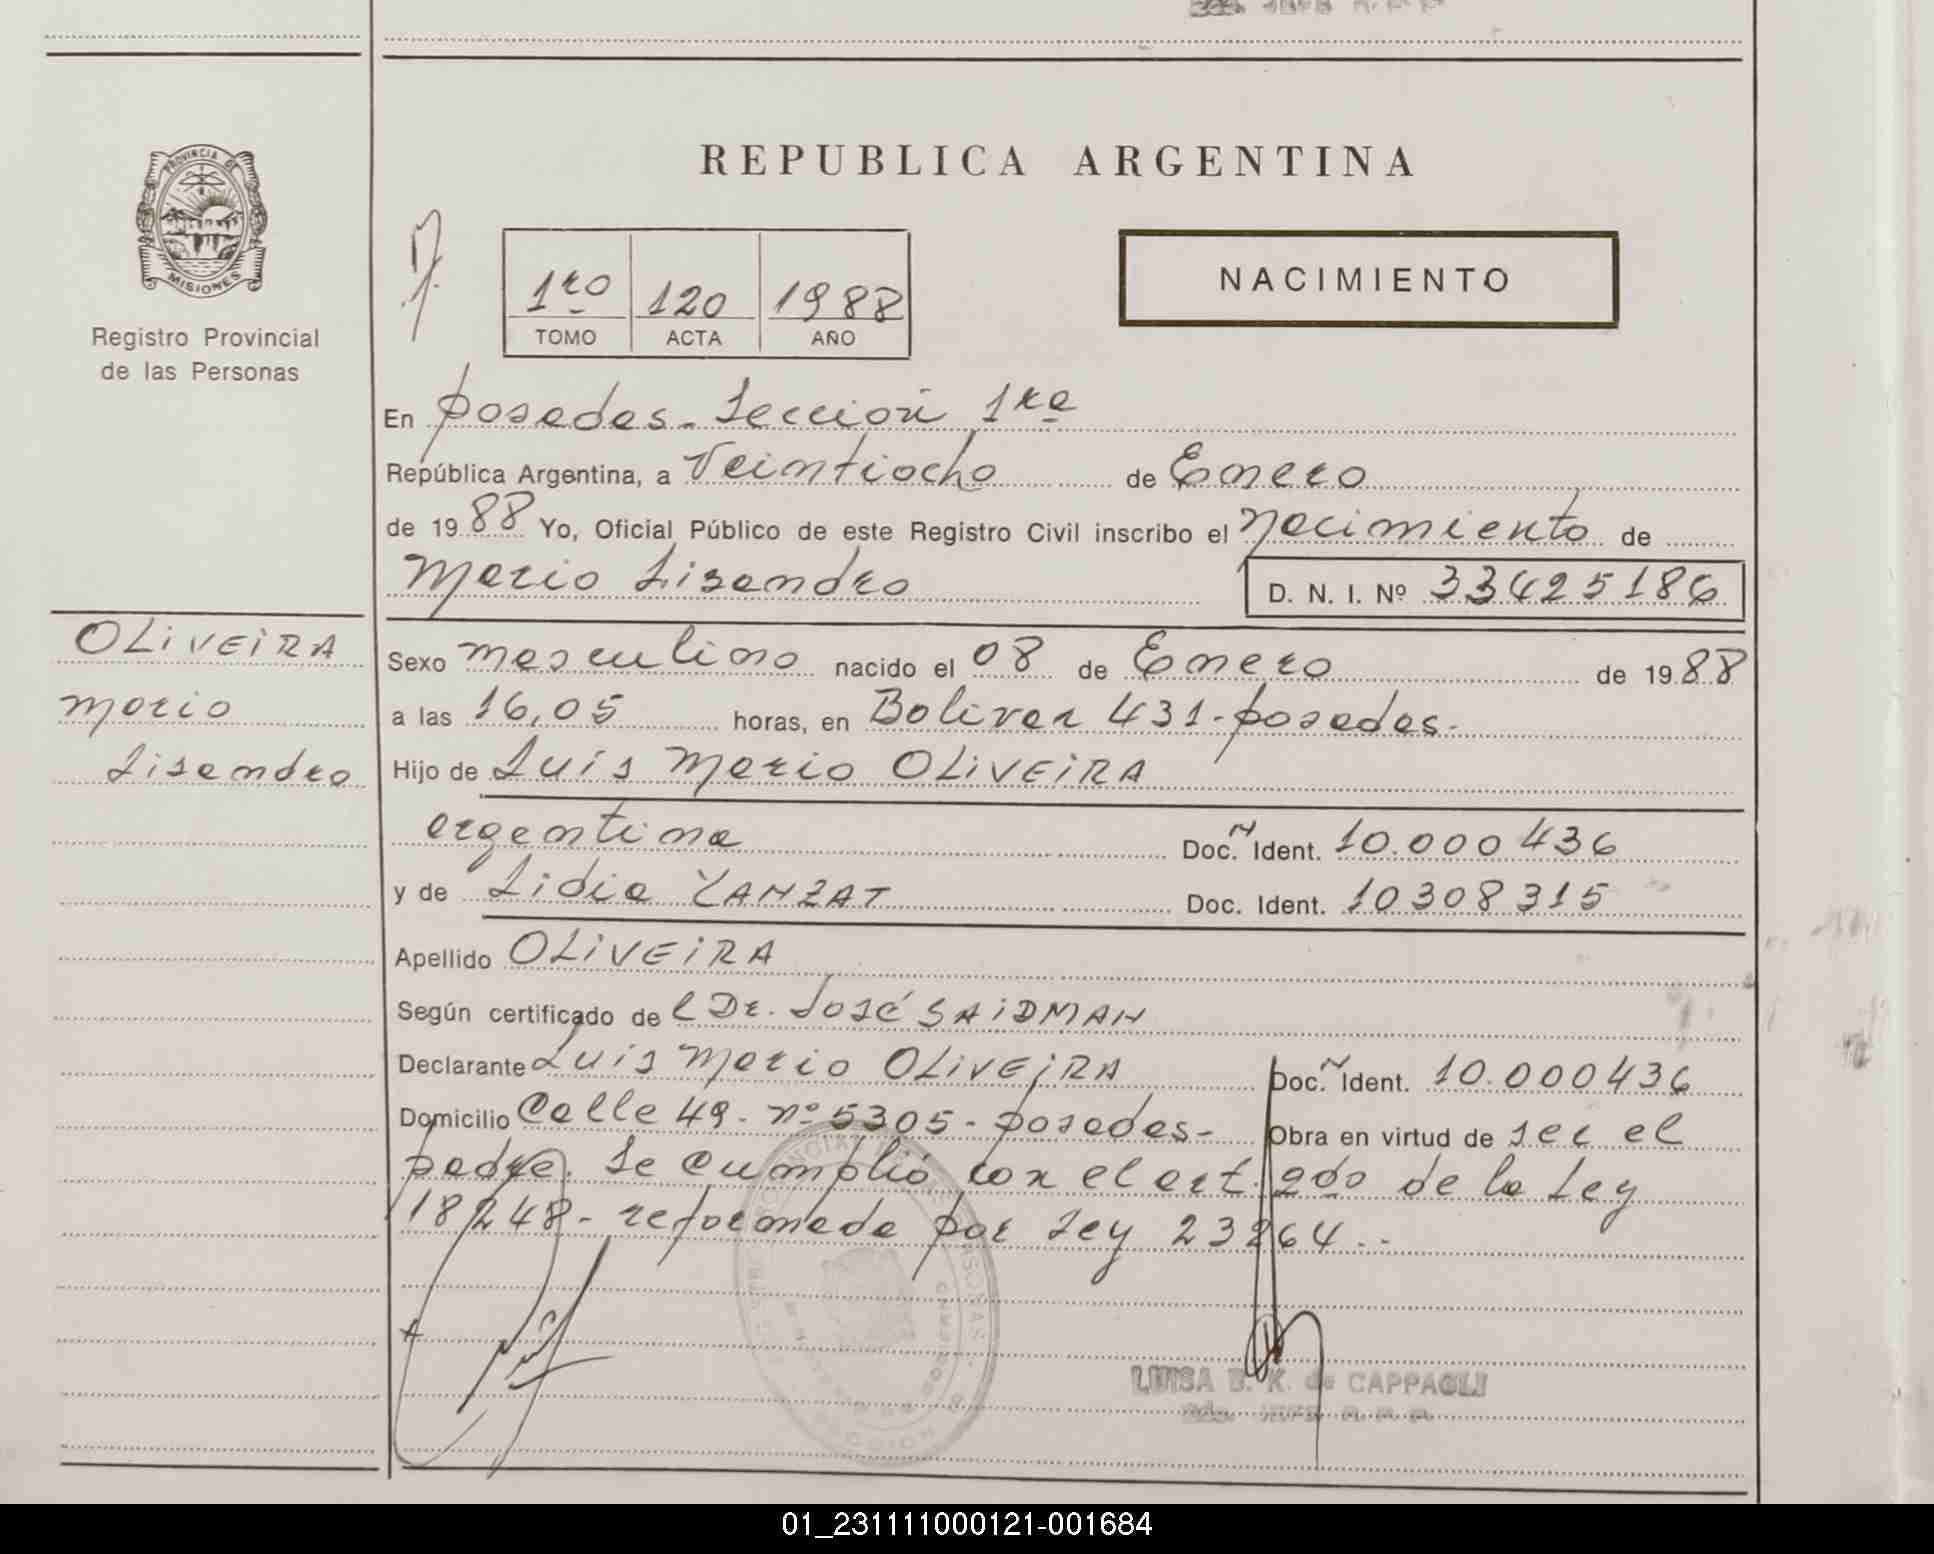 REPUBLICA ARGENTINA
PROVINCIA DE
MISIONES
Registro Provincial
de las Personas
1ro 120 1988
TOMO ACTA AÑO
NACIMIENTO
En Posadas - Sección 1ra
República Argentina, a Veintiocho de Enero
de 1988 Yo, Oficial Público de este Registro Civil inscribo el nacimiento de
Mario Lisandro D. N. I. Nº 33425186
OLIVEIRA
Mario
Lisandro
Sexo masculino nacido el 08 de Enero de 1988
a las 16,05 horas, en Bolivar 431 - posadas -
Hijo de Luis Mario OLIVEIRA
argentina Doc. N Ident. 10.000436
y de Lidia YANZAT Doc. Ident. 10308315
Apellido OLIVEIRA
Según certificado del Dr. José SAIDMAN
Declarante Luis Mario OLIVEIRA Doc. N Ident. 10.000436
Domicilio Calle 49 - nº 5305 - posadas - Obra en virtud de ser el
padre. Se cumplió con el art. 2do de la Ley
18248 - reformada por Ley 23264 . -
LUISA B. K. de CAPPAGLI
2do. JEFE R. P. P.
01_231111000121-001684